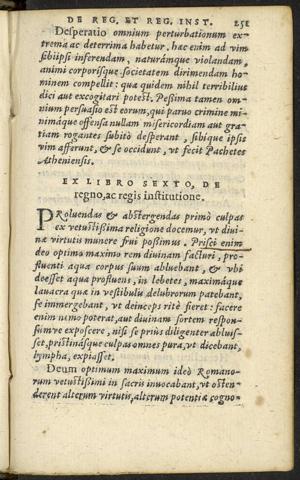 DE REG. ET REG. INST. 251
Desperatio omnium perturbationum ex-
trema ac deterrima habetur, hac enim ad vim
sibiipsi inferendam, naturámque violandam,
animi corporísque societatem dirimendam ho-
minem compellit: qua quidem nihil terribilius
dici aut excogitari potest. Pessima tamen om-
nium persuasio est eorum, qui paruo crimine mi-
nimáque offensa nullam misericordiam aut gra-
tiam rogantes subitò desperant, sibique ipsis
vim afferunt, & se occidunt, vt fecit Pachetes
Atheniensis.
EX LIBRO SEXTO, DE
regno, ac regis institutione.
PRoluendas & abstergendas primò culpas
ex vetustissima religione docemur, vt diui-
na virtutis munere frui possimus. Prisci enim
deo optimo maximo rem diuinam facturi, pro-
fluenti aqua corpus suum abluebant, & vbi
deesset aqua profluens, in lebetes, maximáque
lauacra qua in vestibulis delubrorum patebant,
se immergebant, vt deinceps ritè fieret: facere
enim nemo poterat, aut diuinam sortem respon-
sumve exposcere, nisi se priùs diligenter abluis-
set, pristinásque culpas omnes pura, vt dicebant,
lympha, expiasset.
Deum optimum maximum ideò Romano-
rum vetustissimi in sacris inuocabant, vt osten-
derent alterum virtutis, alterum potentiæ cogno-